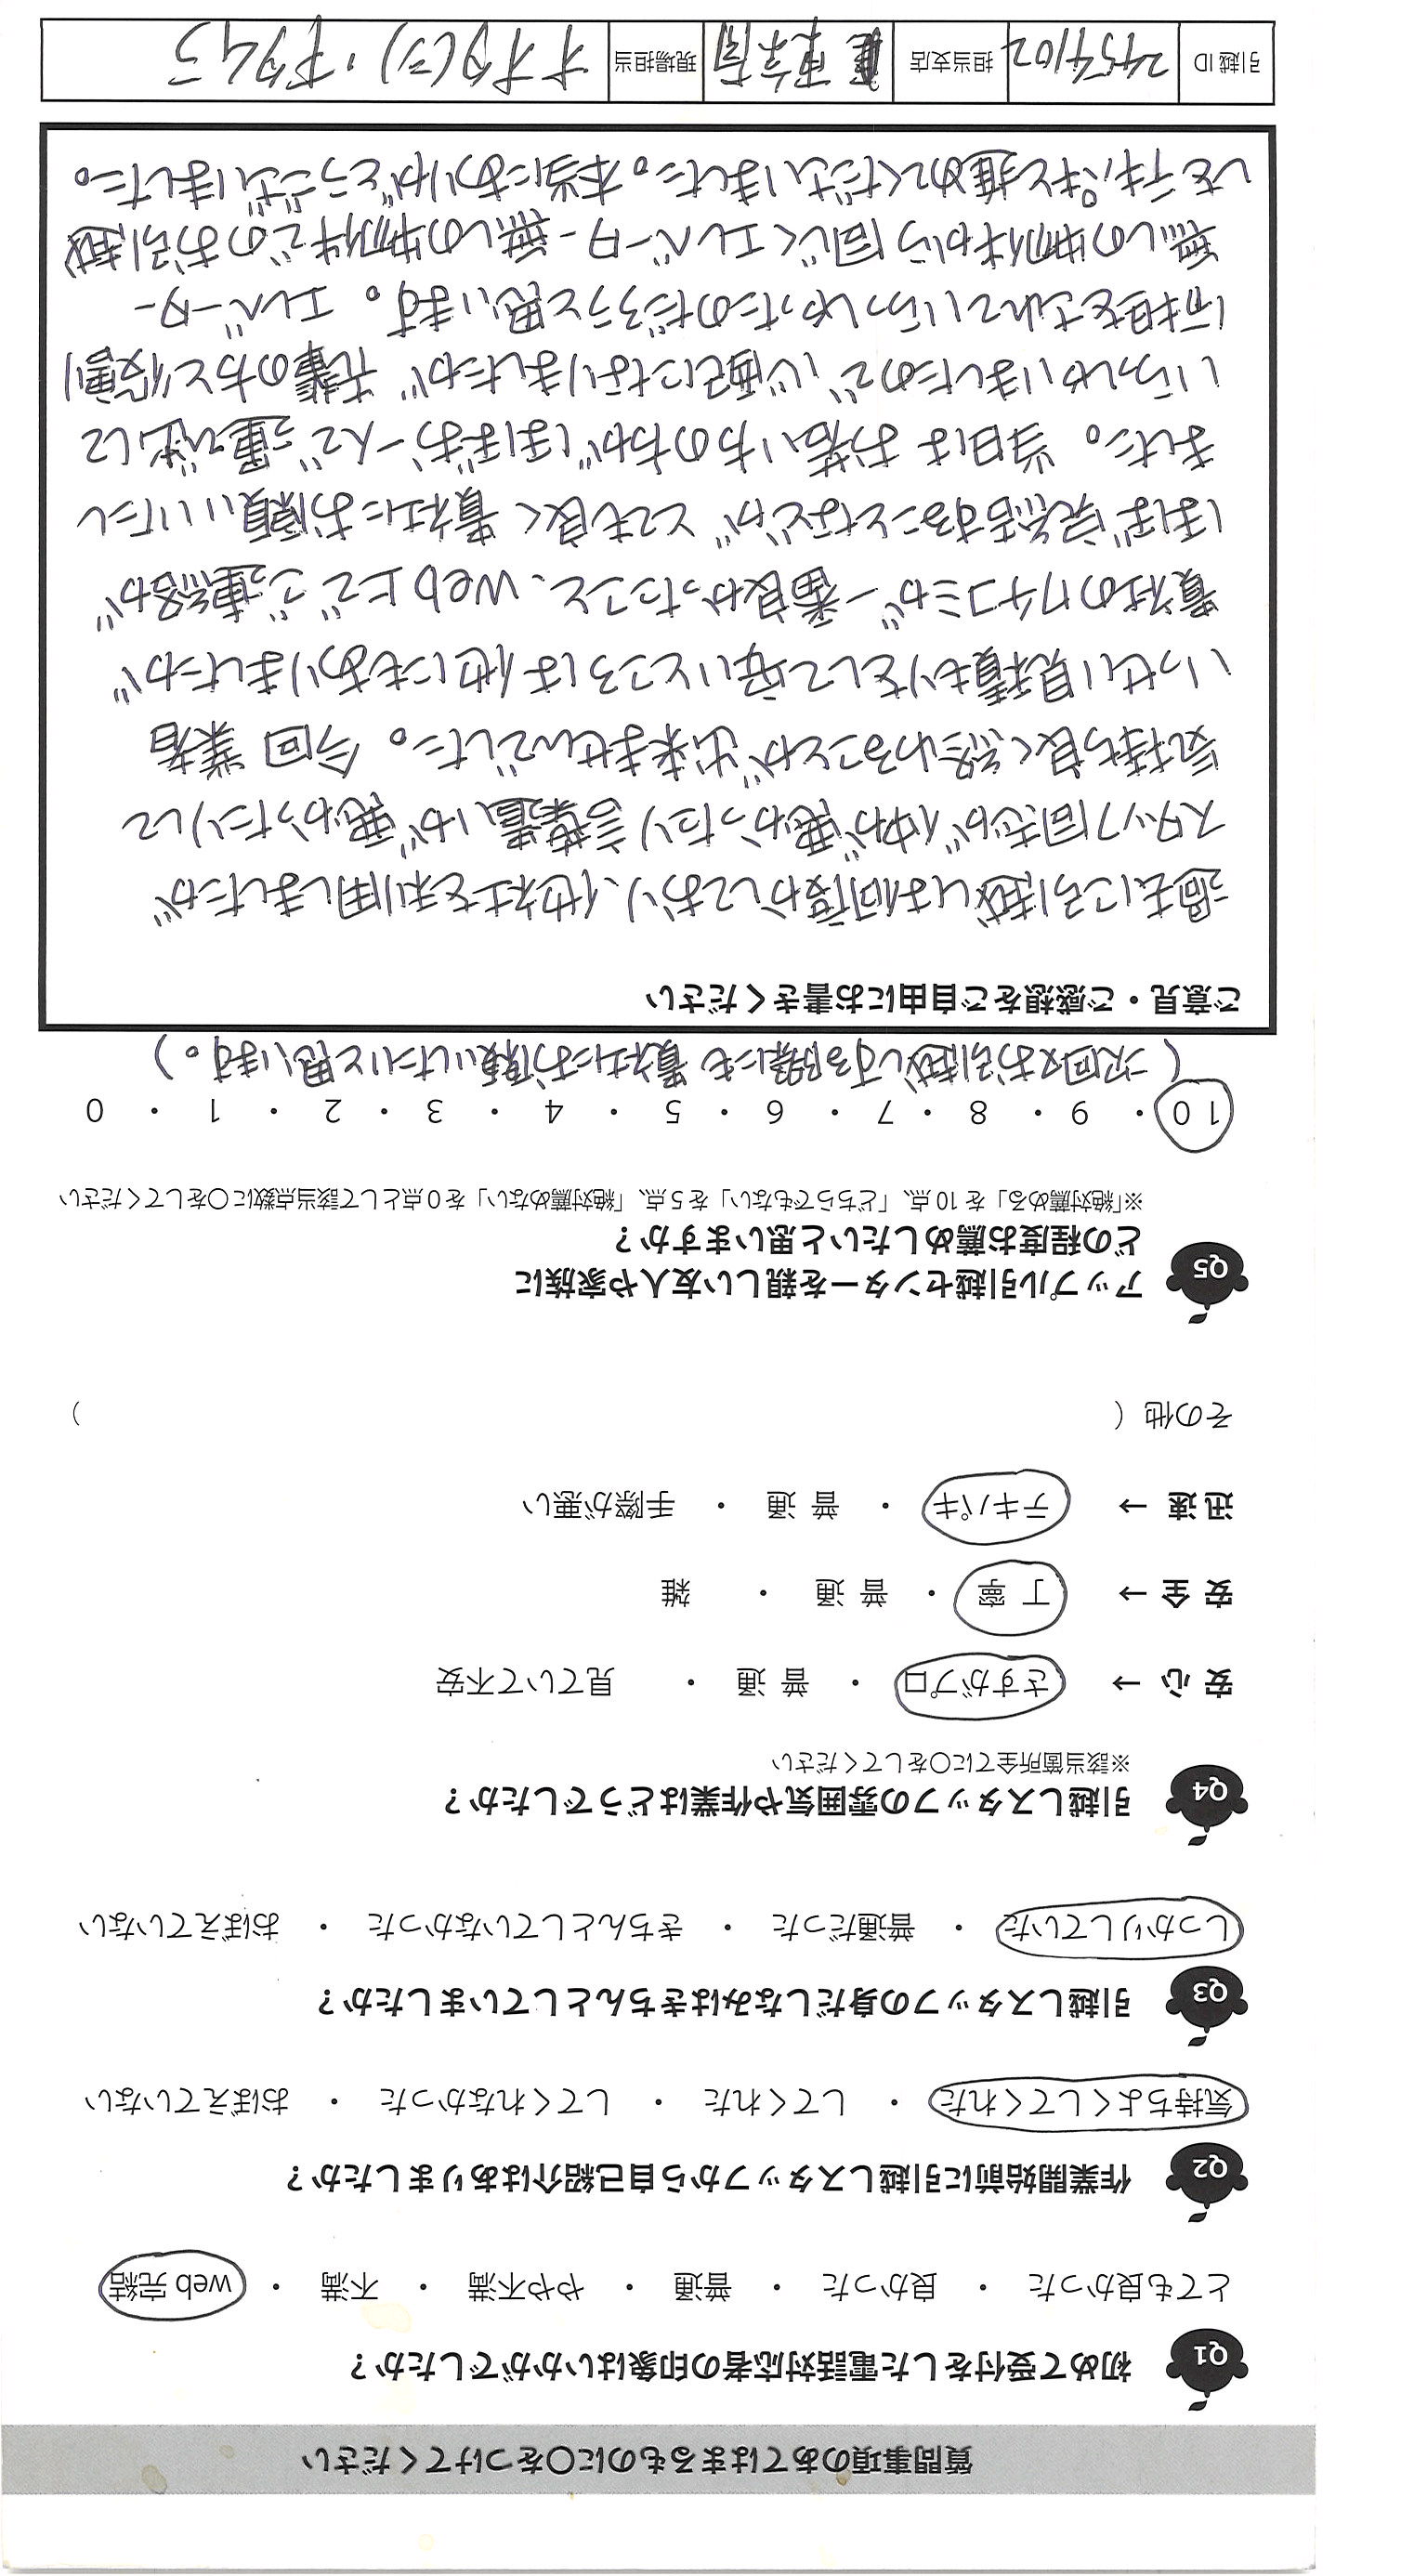 質問事項のあてはまるものに○をつけてください
Q1 初めて受付をした電話対応者の印象はいかがでしたか？
とても良かった ・ 良かった ・ 普通 ・ やや不満 ・ 不満 ・ web 完結
Q2 作業開始前に引越しスタッフから自己紹介はありましたか？
気持ちよくしてくれた ・ してくれた ・ してくれなかった ・ おぼえていない
Q3 引越しスタッフの身だしなみはきちんとしていましたか？
しっかりしていた ・ 普通だった ・ きちんとしていなかった ・ おぼえていない
Q4 引越しスタッフの雰囲気や作業はどうでしたか？
※該当箇所全てに○をしてください
安 心 → さすがプロ ・ 普 通 ・ 見ていて不安
安 全 → 丁 寧 ・ 普 通 ・ 雑
迅 速 → テキパキ ・ 普 通 ・ 手際が悪い
その他（ ）
Q5 アップル引越センターを親しい友人や家族に
どの程度お薦めしたいと思いますか？
※「絶対薦める」を 10 点、「どちらでもない」を 5 点、「絶対薦めない」を 0 点として該当点数に○をしてください
10 ・ 9 ・ 8 ・ 7 ・ 6 ・ 5 ・ 4 ・ 3 ・ 2 ・ 1 ・ 0
（次回又お引越しする際にも貴社にお願いしたいと思います。）
ご意見・ご感想をご自由にお書きください
過去に引越しは何度かしており、他社を利用しましたが
スタッフ同志が仲が悪かったり言葉遣いが悪かったりして
気持ち良く終わることが出来ませんでした。今回 業者
いっせい見積もりをして安いところは他にもありましたが
貴社のクチコミが一番良かったこと、Web上でご連絡が
ほぼ完結することなどがとても良く貴社にお願いいたし
ました。当日はお若い方のかたがほぼお一人で運び出して
いらっしゃいましたので心配になりましたが 先輩の方と役割
分担をされていらっしゃったのだろうと思います。エレベーター
無しの物件から同じくエレベーター無しの物件でのお引越
しをテキパキと進めてくださいました。本当にありがとうございました。
引越 ID 2454102 担当支店 東京南 現場担当 オオタ(ヨ)・